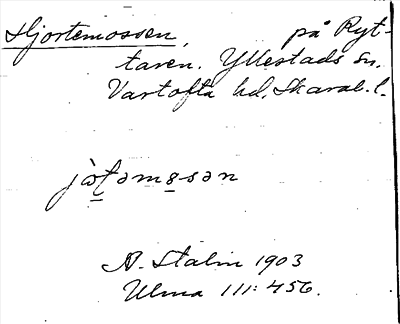 Hjortemossen, på Ryt-
taren. Yllestads sn.
Vartofta hd. Skarab. l.
jòʈəmꞷsən
N. Stålin 1903
Ulma 111:456.